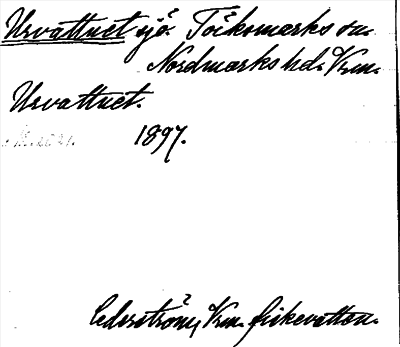 Urvattnet sjö. Töcksmarks sn.
Nordmarks hd. Vrm.
Urvattnet.
1897.
Cederström, Vrm. fiskevatten.